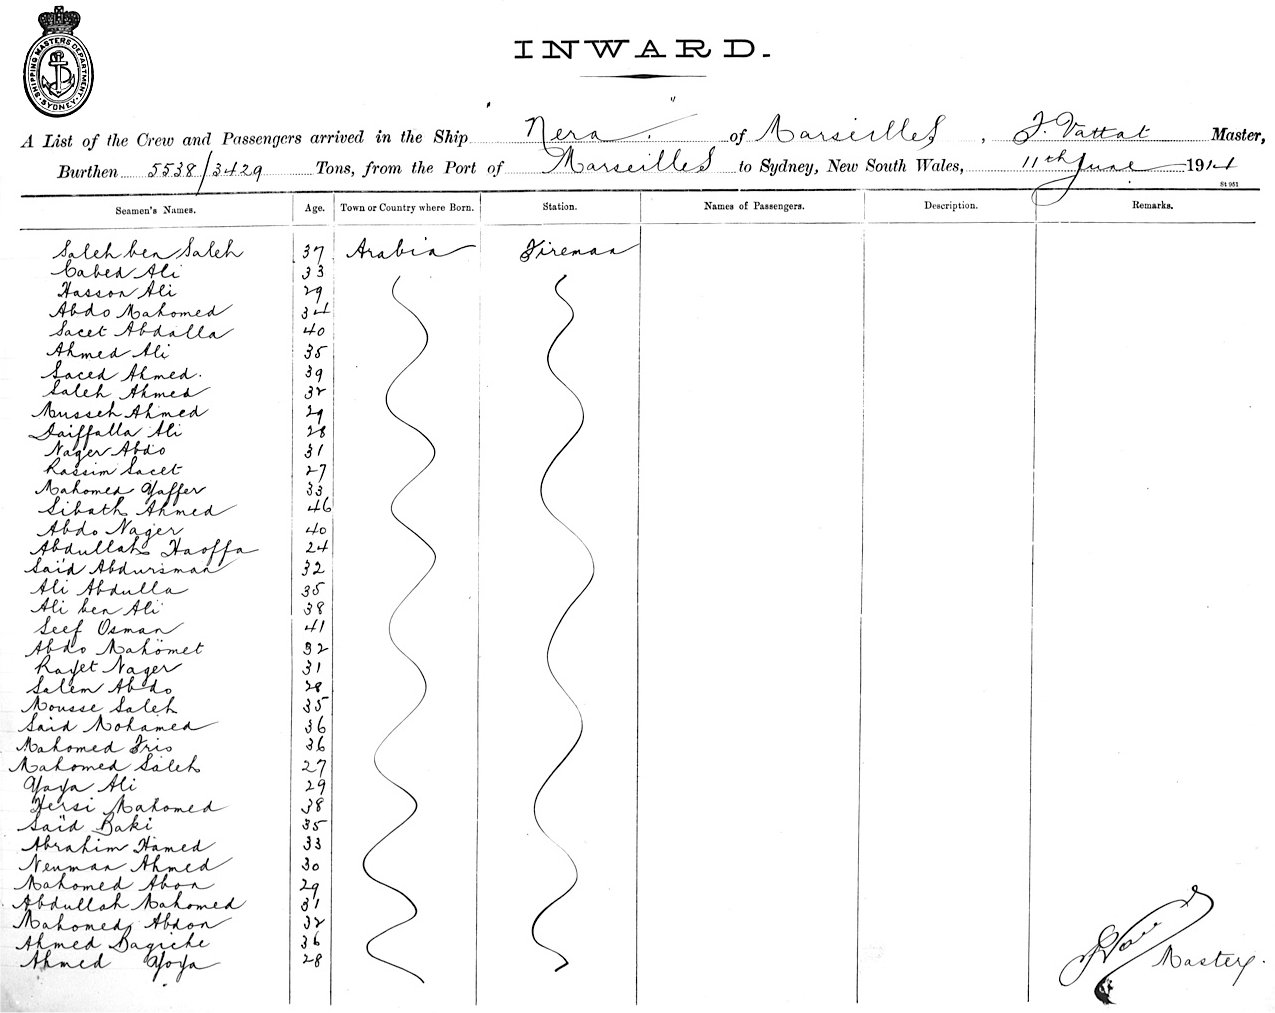 SHIPPING MASTERS DEPARTMENT
SYDNEY
INWARD.
A List of the Crew and Passengers arrived in the Ship Nera of Marseilles, J. Vattat Master,
Burthen 5538/3429 Tons, from the Port of Marseilles to Sydney, New South Wales, 11th June 1914
St 951
Seamen's Names. Age. Town or Country where Born. Station. Names of Passengers. Description. Remarks.
Saleh ben Saleh 37 Arabia Fireman
Cabed Ali 33
Hasson Ali 29
Abdo Mahomed 34
Sacet Abdalla 40
Ahmed Ali 35
Saced Ahmed. 39
Saleh Ahmed 32
Musseh Ahmed 29
Saiffalla Ali 28
Nager Abdo 31
Rassim Sacet 27
Mahomed Yaffer 33
Sibath Ahmed 46
Abdo Nager 40
Abdullah Haoffa 24
Saïd Abdursman 32
Ali Abdulla 35
Ali ben Ali 38
Seef Osman 41
Abdo Mahomet 32
Rayet Nager 31
Salem Abdo 28
Mousse Saleh 35
Said Mohamed 36
Mahomed Fris 36
Mahomed Saleh 27
Yaya Ali 29
Hersi Mahomed 38
Saïd Baki 35
Abrahim Hamed 33
Neuman Ahmed 30
Mahomed Abon 29
Abdullah Mahomed 31
Mahomed Abdon 32
Ahmed Bagiche 36
Ahmed Yoya 28
Master.